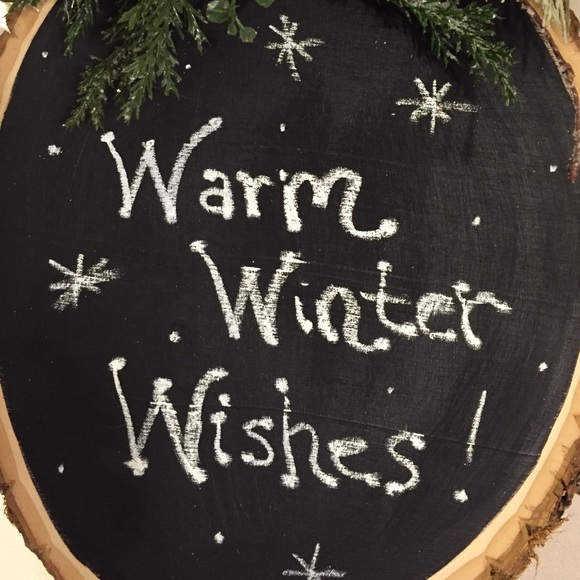 Warm
Winter
Wishes!